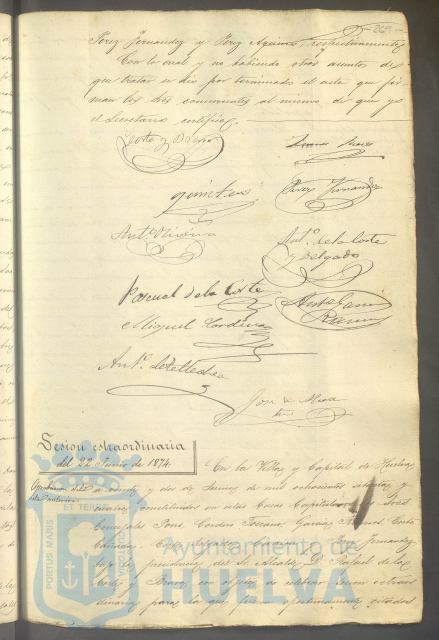 Perez Fernandez y Perez Aquino, respectivamente.
Con lo cual y no habiendo otros asuntos de
que tratar se dio por terminado el acta que fir
man los tres concurrentes al mismo de que yo
el Secretario certifico.
Corte y Bravo
Suarez
Quintero
Perez Fernandez
Antº Oliveira
Antº de la Corte
y Delgado
Pascual de la Corte
Antº Garcia
Ramos
Miguel Cordero
Antº de la
José de Mora
Sesion estraordinaria
del 22 Junio de 1874.
En la Villa y Capital de Huelva
a veinte y dos de Junio de mil ochocientos setenta y
cuatro, constituidos en estas Casas Capitulares los Sres
Concejales Pons, Cordero, Toscano, Garcia Ramos, Corte
Perez Fernandez
bajo la presidencia del Sr. Alcalde D. Rafael de la
Corte y Bravo con objeto de celebrar sesion estraor
dinaria para la que fueron oportunamente citados
PORTUS MARIS ET TERRAE CUSTODIA
Ayuntamiento de
HUELVA